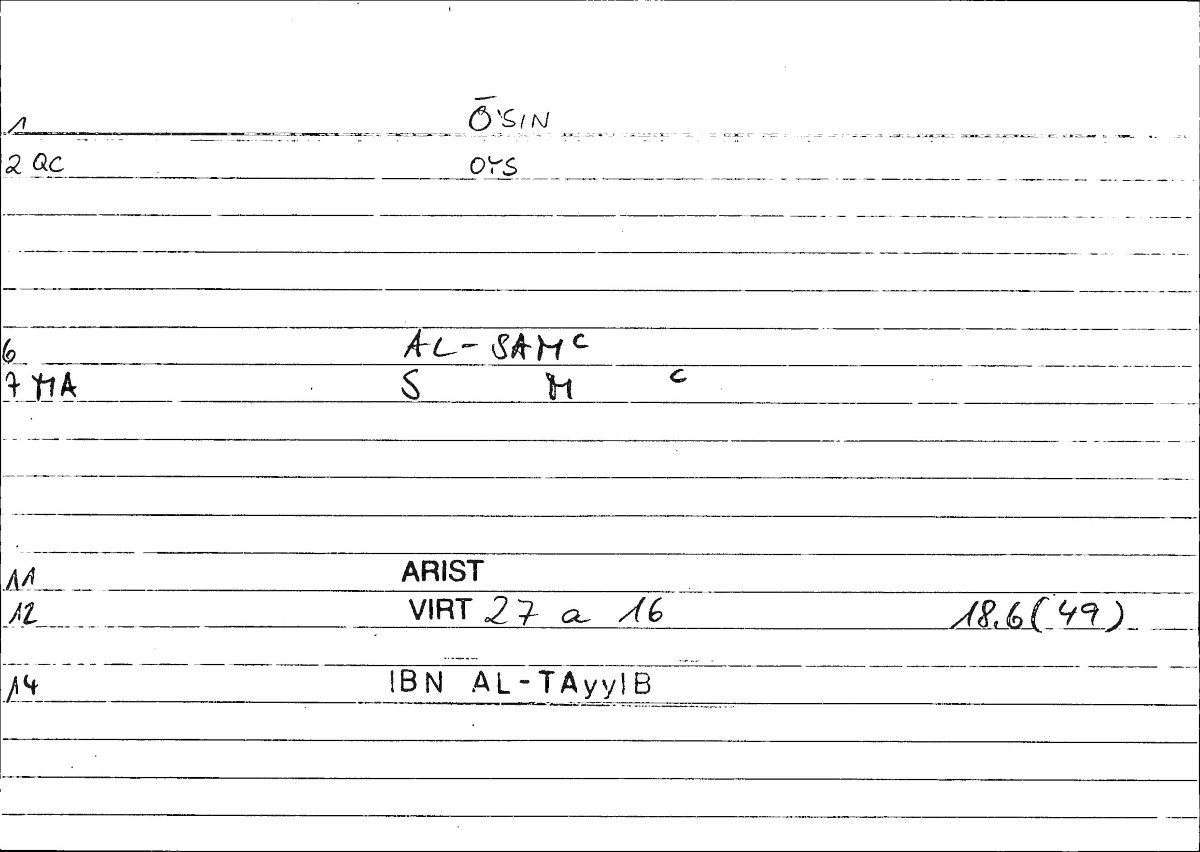 1 Ō'SIN
2 QC OYS
6 AL-SAMC
7 MA S M C
11 ARIST
12 VIRT 27 a 16 18.6(49)
14 IBN AL-TAyyIB